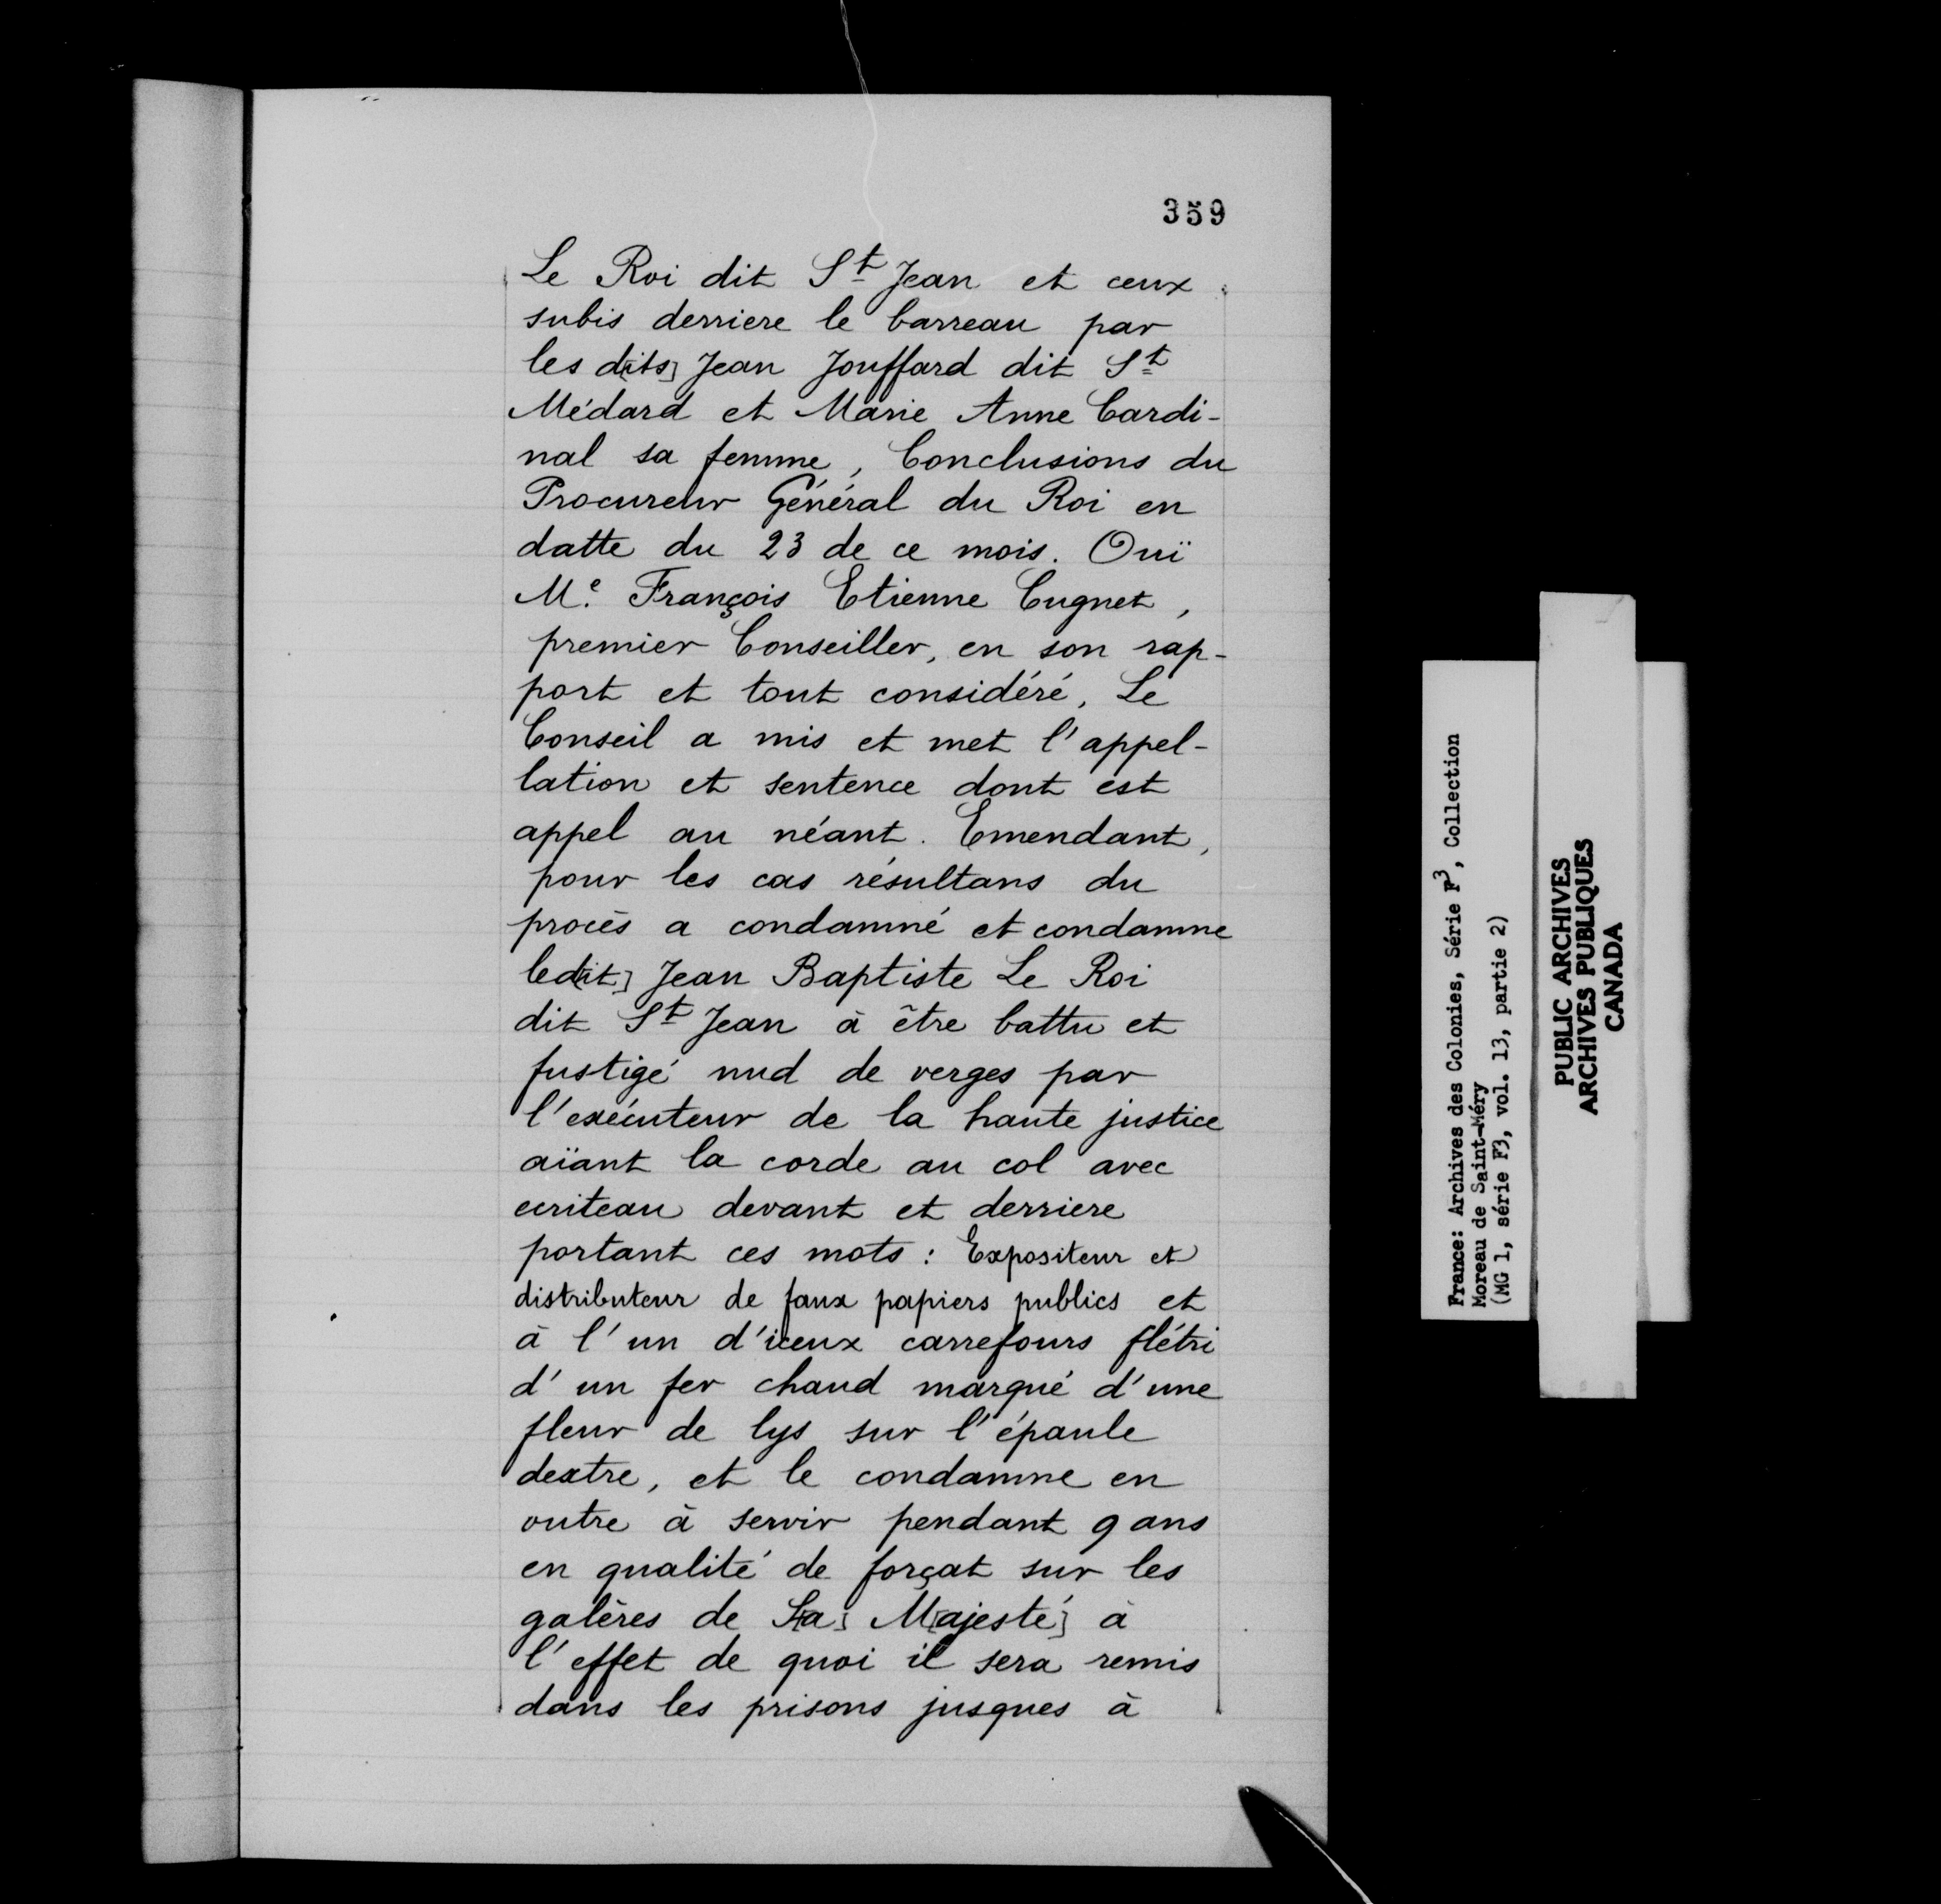 359
Le Roi dit St Jean et ceux
subis derriere le barreau par
les d[its] Jean Jouffard dit St
Médard et Marie Anne Cardi-
nal sa femme, Conclusions du
Procureur Général du Roi en
datte du 23 de ce mois. Ouï
Me. François Etienne Cugnet,
premier Conseiller, en son rap-
port et tout considéré, Le
Conseil a mis et met l'appel-
lation et sentence dont est
appel au néant. Emendant,
pour les cas résultans du
procès a condamné et condamne
led[it] Jean Baptiste Le Roi
dit St Jean à être battu et
fustigé nud de verges par
l'exécuteur de la haute justice
aïant la corde au col avec
ecriteau devant et derriere
portant ces mots : Expositeur et
distributeur de faux papiers publics et
à l'un d'iceux carrefours flétri
d'un fer chaud marqué d'une
fleur de lys sur l'épaule
dextre, et le condamne en
outre à servir pendant 9 ans
en qualité de forçat sur les
galères de S[a] M[ajesté] à
l'effet de quoi il sera remis
dans les prisons jusques à
France: Archives des Colonies, Série F3, Collection
Moreau de Saint-Méry
(MG 1, série F3, vol. 13, partie 2)
PUBLIC ARCHIVES
ARCHIVES PUBLIQUES
CANADA